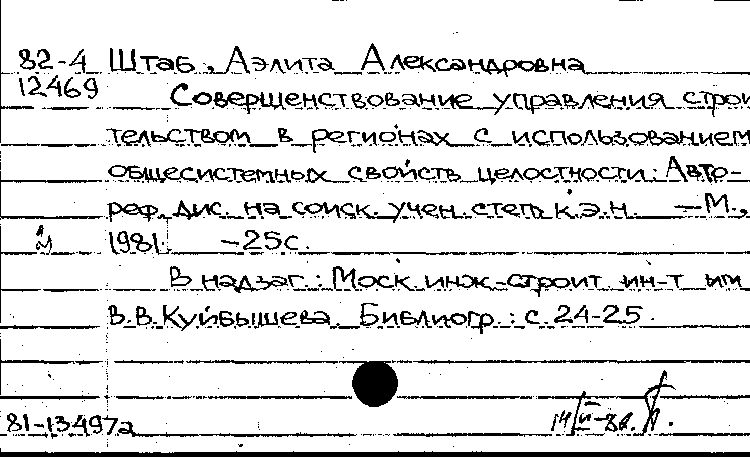 82-4 Штаб, Аэлита Александровна
12469 Совершенствование управления строи
тельством в регионах с использованием
общесистемных свойств целостности: Авто-
реф. дис. на соиск. учен. степ. к.э.н. — М.,
1981. — 25с.
В надзаг.: Моск. инж.-строит. ин-т им.
В.В.Куйбышева. Библиогр.: с. 24-25.
81-13497а